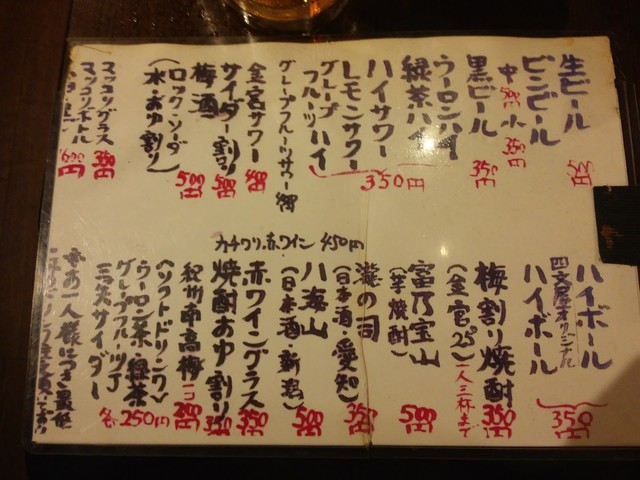 生ビール 500円
ビンビール 中500円 小350円
黒ビール 350円
ウーロンハイ
緑茶ハイ
ハイサワー
レモンサワー
グレープフルーツハイ
350円
グレープフルーツサワー
金宮サワー
サイダー割り 500円
梅酒 500円
(ロック・ソーダ
水・お湯割り)
マッコリグラス 350円
マッコリボトル
カチワリ赤ワイン 450円
ハイボール
四文屋オリジナル
ハイボール
350円
梅割り焼酎 350円
(金宮25°) 一人三杯まで
富乃宝山 500円
(芋焼酎)
瀧の司 350円
(日本酒・愛知)
八海山 500円
(日本酒・新潟)
赤ワイングラス 350円
焼酎お湯割り 350円
紀州南高梅 一コ 200円
〈ソフトドリンク〉
ウーロン茶・緑茶
グレープフルーツJ
三矢サイダー
各250円
お一人様につき最低